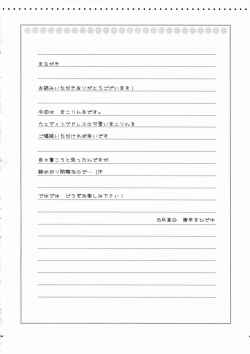 まえがき
お読みいただきありがとうございます!
今回は まこりんるです。
ウェディングドレスの可愛いまこりんを
ご堪能いただければ幸いです
色々書こうと思ったんですが
締め切り間際なので… (汗
ではでは どうぞお楽しみ下さい!
5月某日